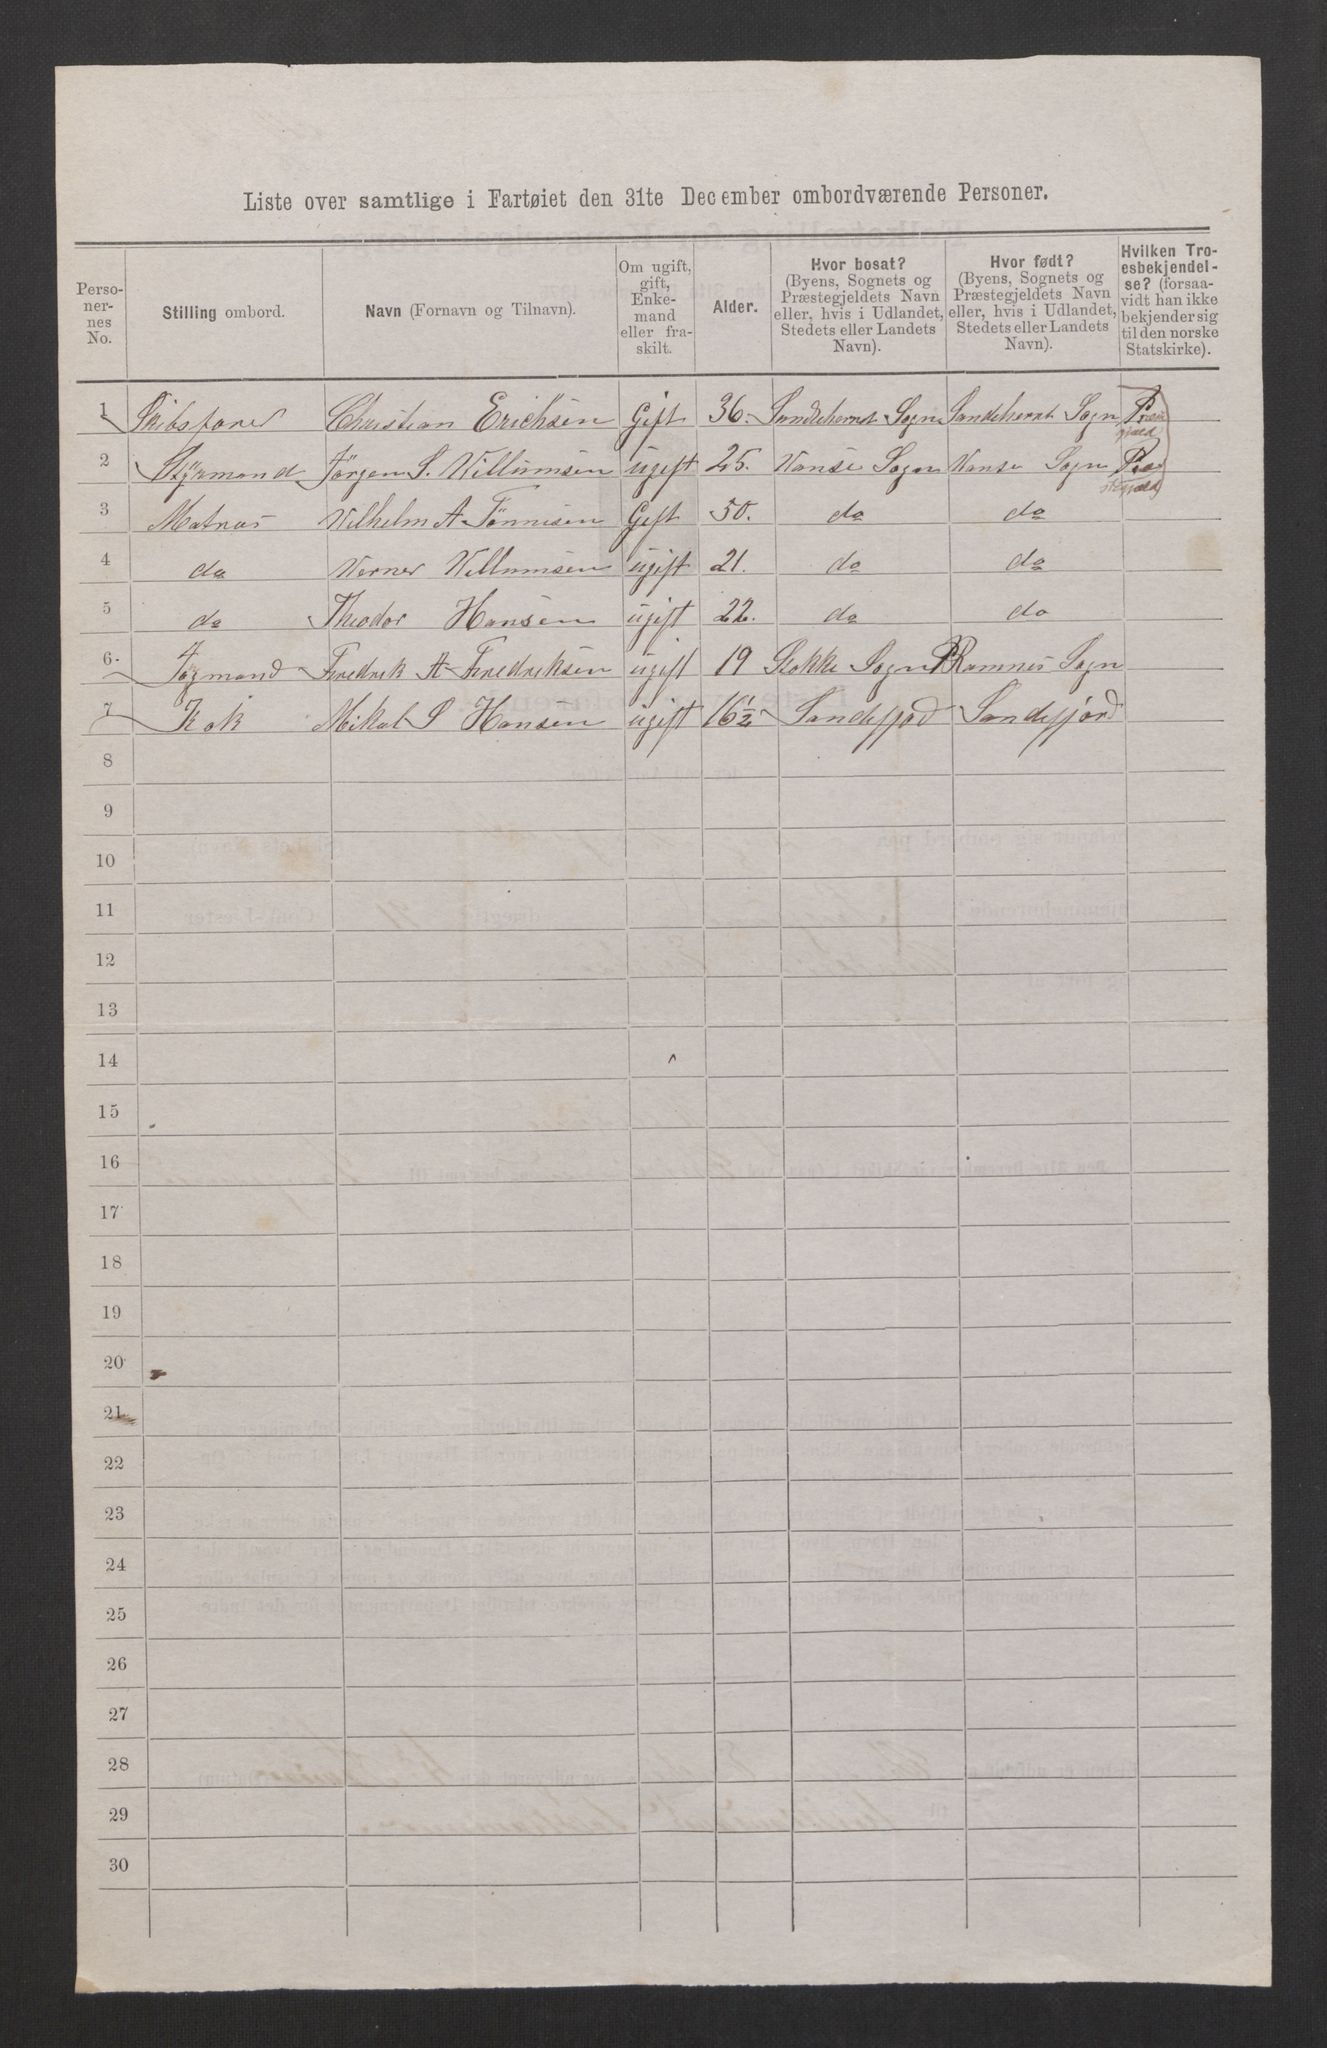 Liste over samtlige i Fartøiet den 31te December ombordværende Personer.
Perso-
ner-
nes
No.
Stilling ombord.
Navn (Fornavn og Tilnavn).
Om ugift,
gift,
Enke-
mand
eller fra-
skilt.
Alder.
Hvor bosat?
(Byens, Sognets og
Præstegjeldets Navn
eller, hvis i Udlandet,
Stedets eller Landets
Navn).
Hvor født?
(Byens, Sognets og
Præstegjeldets Navn
eller, hvis i Udlandet,
Stedets eller Landets
Navn).
Hvilken Tro-
esbekjendel-
se? (forsaa-
vidt han ikke
bekjender sig
til den norske
Statskirke).
1 Skibsfører Christian Ericksen Gift 36. Sandeherret Sogn Sandeherret Sogn Præste
gjæld
2 Styrmand Jørgen S. Villumsen ugift 25. Nanse Sogn Nanse Sogn Præ
stegjæld
3 Matros Vilhelm A Tönnisen Gift 50. do do
4 do Verner Villumsen ugift 21. do do
5 do Theodor Hansen ugift 22. do do
6 Jogmand Fredrek A Fredreksen ugift 19 Stokke Sogn P Ramnes Sogn
7 Kok Mikal S Hansen ugift 16½ Sandefjod Sandefjord
8
9
10
11
12
13
14
15
16
17
18
19
20
21
22
23
24
25
26
27
28
29
30